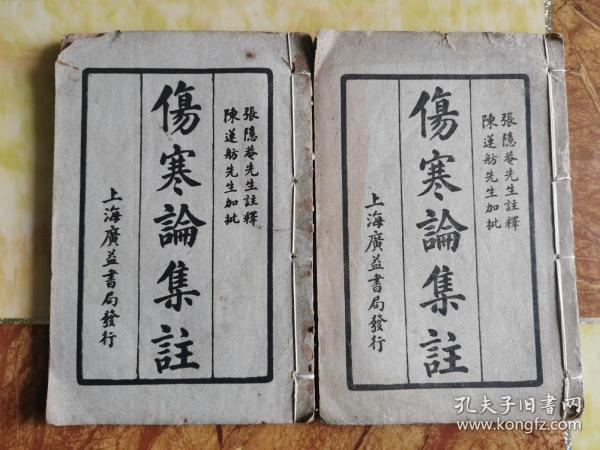 張隱菴先生註釋
陳蓮舫先生加批
傷寒論集註
上海廣益書局發行
張隱菴先生註釋
陳蓮舫先生加批
傷寒論集註
上海廣益書局發行
孔夫子旧书网
www.kongfz.com